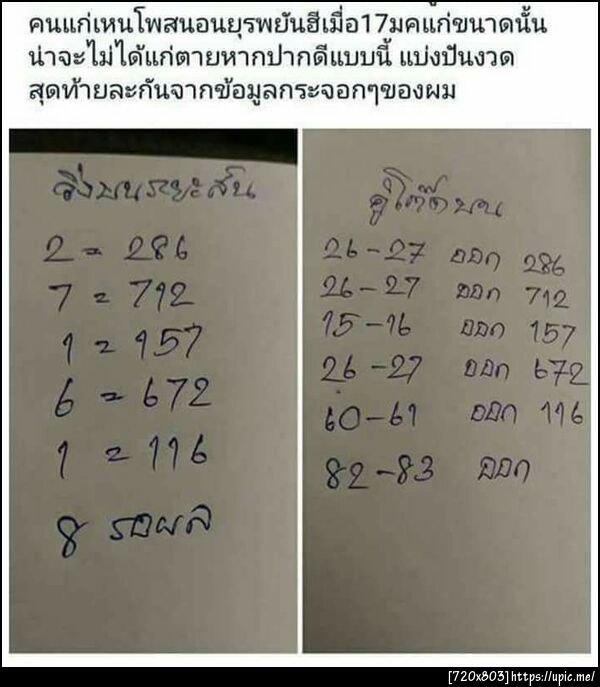 คนแก่เหนโพสนอนยุรพยันฮีเมื่อ17มคแก่ขนาดนั้น
น่าจะไม่ได้แก่ตายหากปากดีแบบนี้ แบ่งปันงวด
สุดท้ายละกันจากข้อมูลกระจอกๆของผม
วิ่งบนระยะสั้น
2 = 286
7 = 712
1 = 157
6 = 672
1 = 116
8 รอผล
คู่โต๊ดบน
26-27 ออก 286
26-27 ออก 712
15-16 ออก 157
26-27 ออก 672
60-61 ออก 116
82-83 ออก
[720x803]https://upic.me/